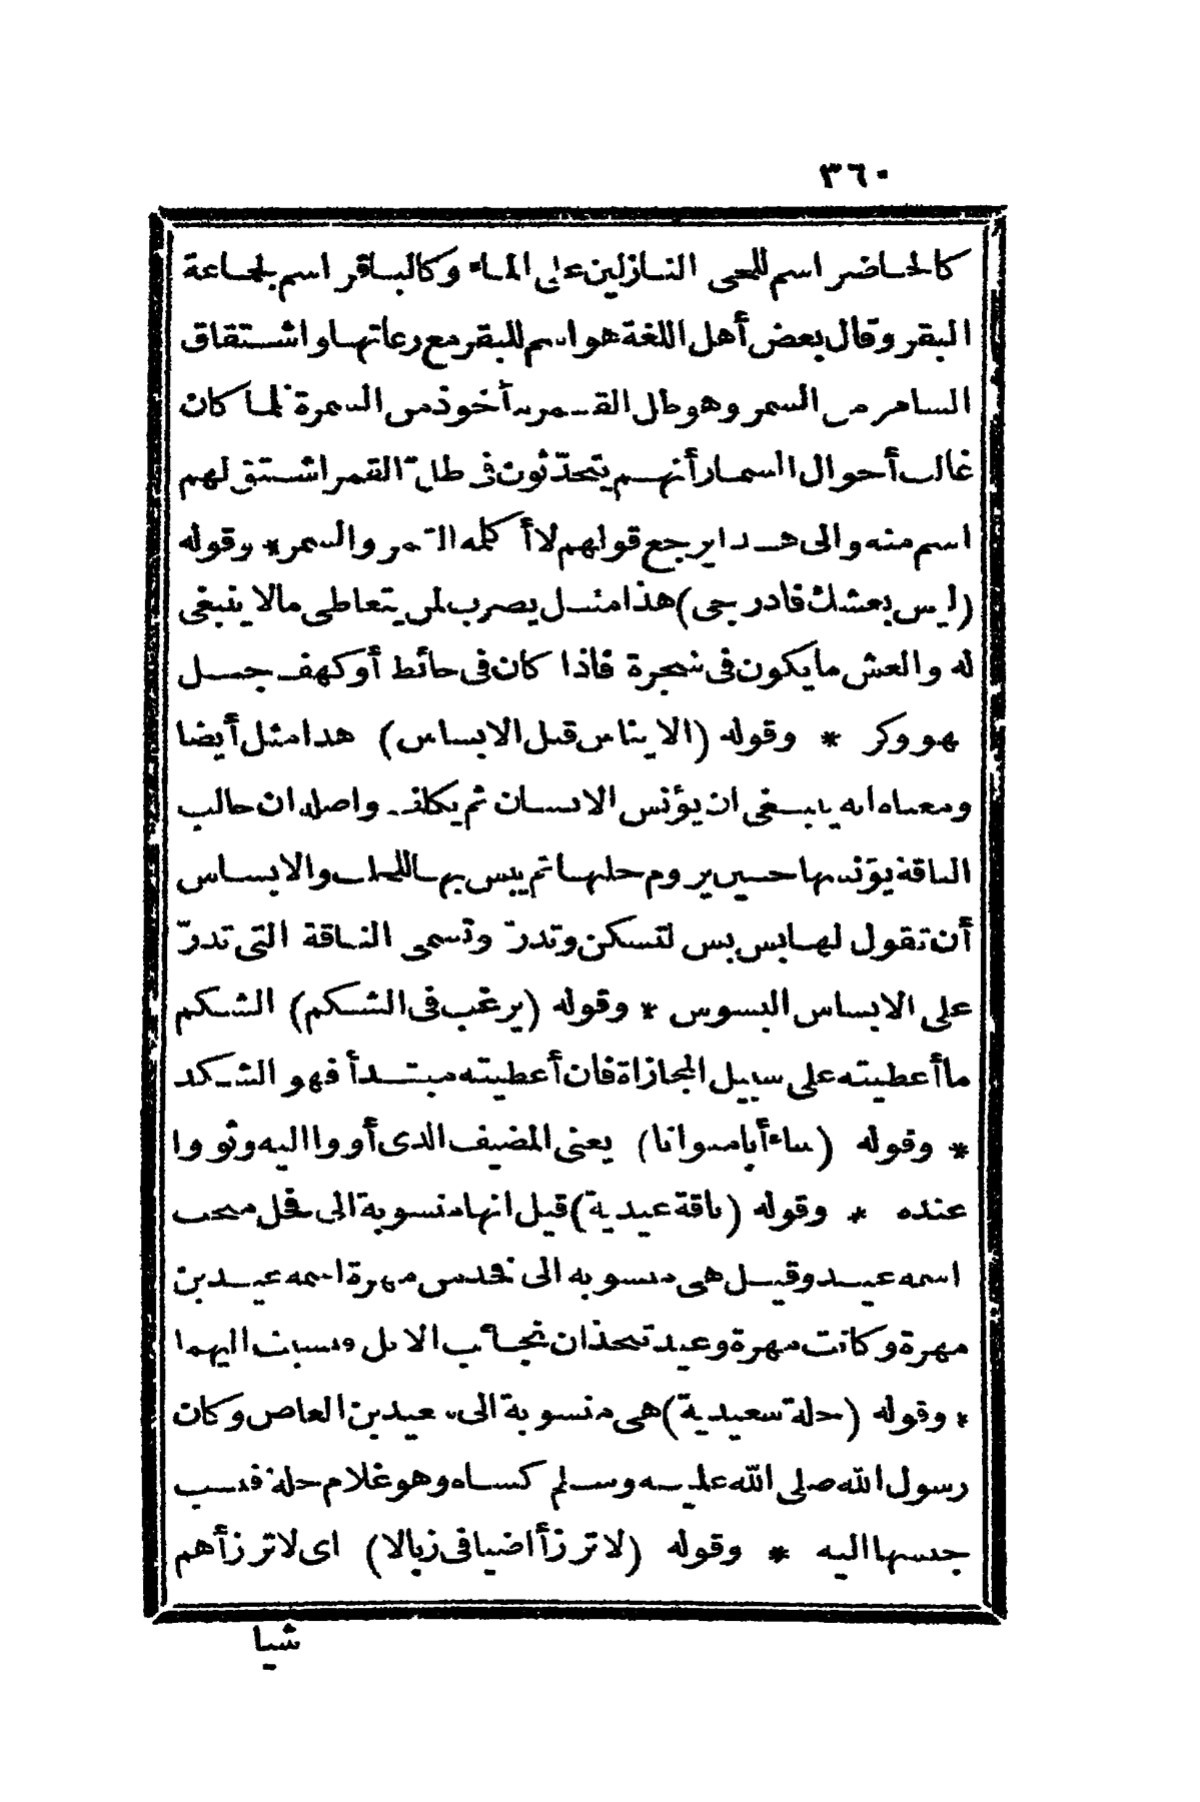 ٣٦٠
كالحاضر اسم للحى النازلين على الماء وكالباقر اسم لجماعة
البقر وقال بعض أهل اللغة هو اسم للبقر مع رعاتها واشتقاق
السامر من السمر وهو ظل القمر مأخوذ من السمرة فلما كان
غالب أحوال السمار أنهم يتحدّثون فى ظلّ القمر اشتق لهم
اسم منه والى هذا يرجع قولهم لا أكلمه القمر والسمر * وقوله
(ليس بعشك فادرجى) هذا مثل يضرب لمن يتعاطى مالا ينبغى
له والعش ما يكون فى شجرة فاذا كان فى حائط أو كهف جبل
فهو وكر * وقوله (الايناس قبل الابساس) هذا مثل أيضا
ومعناه انه ينبغى ان يؤنس الانسان ثم يكلف واصله ان حالب
الناقة يؤنسها حين يروم حلبها ثم يبس بها للحلب والابساس
أن تقول لها بس بس لتسكن وتدرّ وتسمى الناقة التى تدرّ
على الابساس البسوس * وقوله (يرغب فى الشكم) الشكم
ما أعطيته على سبيل المجازاة فان أعطيته مبتدأ فهو الشكد
* وقوله (ساء أبا مثوانا) يعنى المضيف الذى أووا اليه وثووا
عنده * وقوله (ناقة عيدية) قيل انها منسوبة الى فحل منجب
اسمه عيد وقيل هى منسوبه الى فخذ من مهرة اسمه عيد بن
مهرة وكانت مهرة وعيد تتخذان نجائب الابل فنسبت اليهما
* وقوله (حلة سعيدية) هى منسوبة الى سعيد بن العاص وكان
رسول الله صلى الله عليه وسلم كساه وهو غلام حلة فنسب
جنسها اليه * وقوله (لا ترزأ اضيافى زبالا) اى لا ترزأهم
شيا